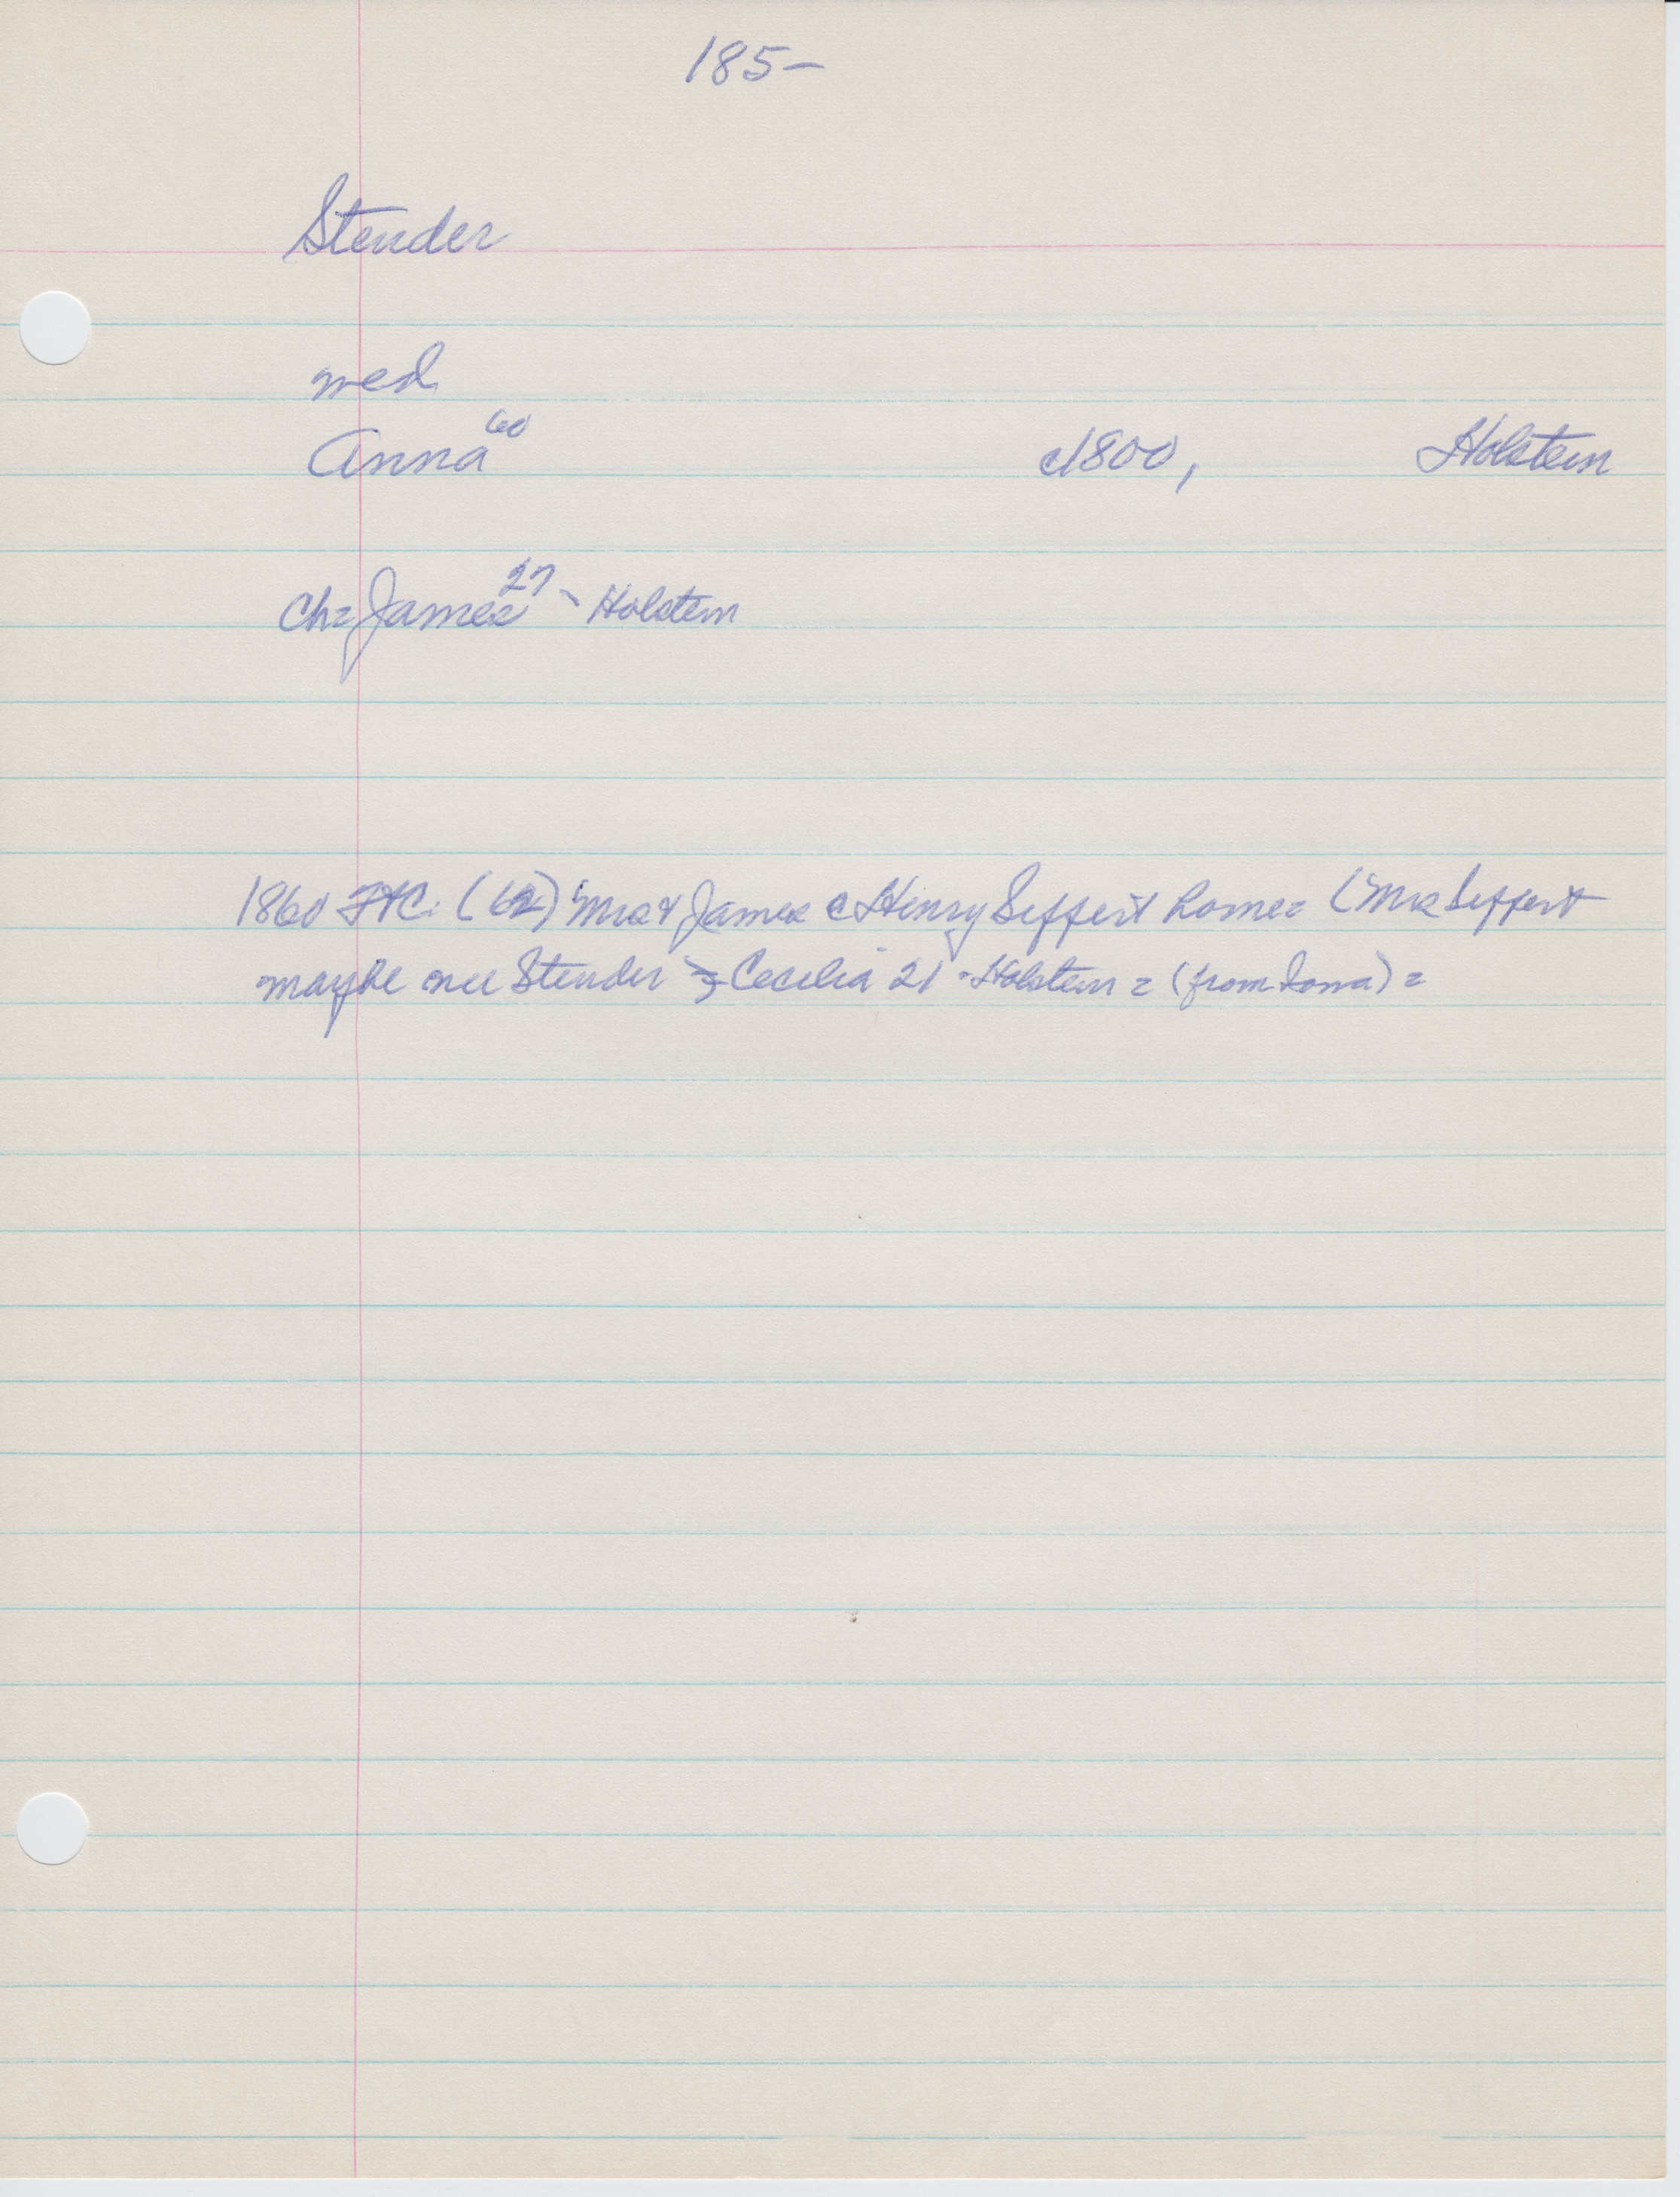 185-
Stender
med
Anna 60 c1800, Holstein
Ch= James 27 - Holstein
1860 (62) Mrs & James c Henry Seffert home= (Mrs Seffert
maybe nee Stender = Cecelia 21 - Holstein = (from Iowa) =